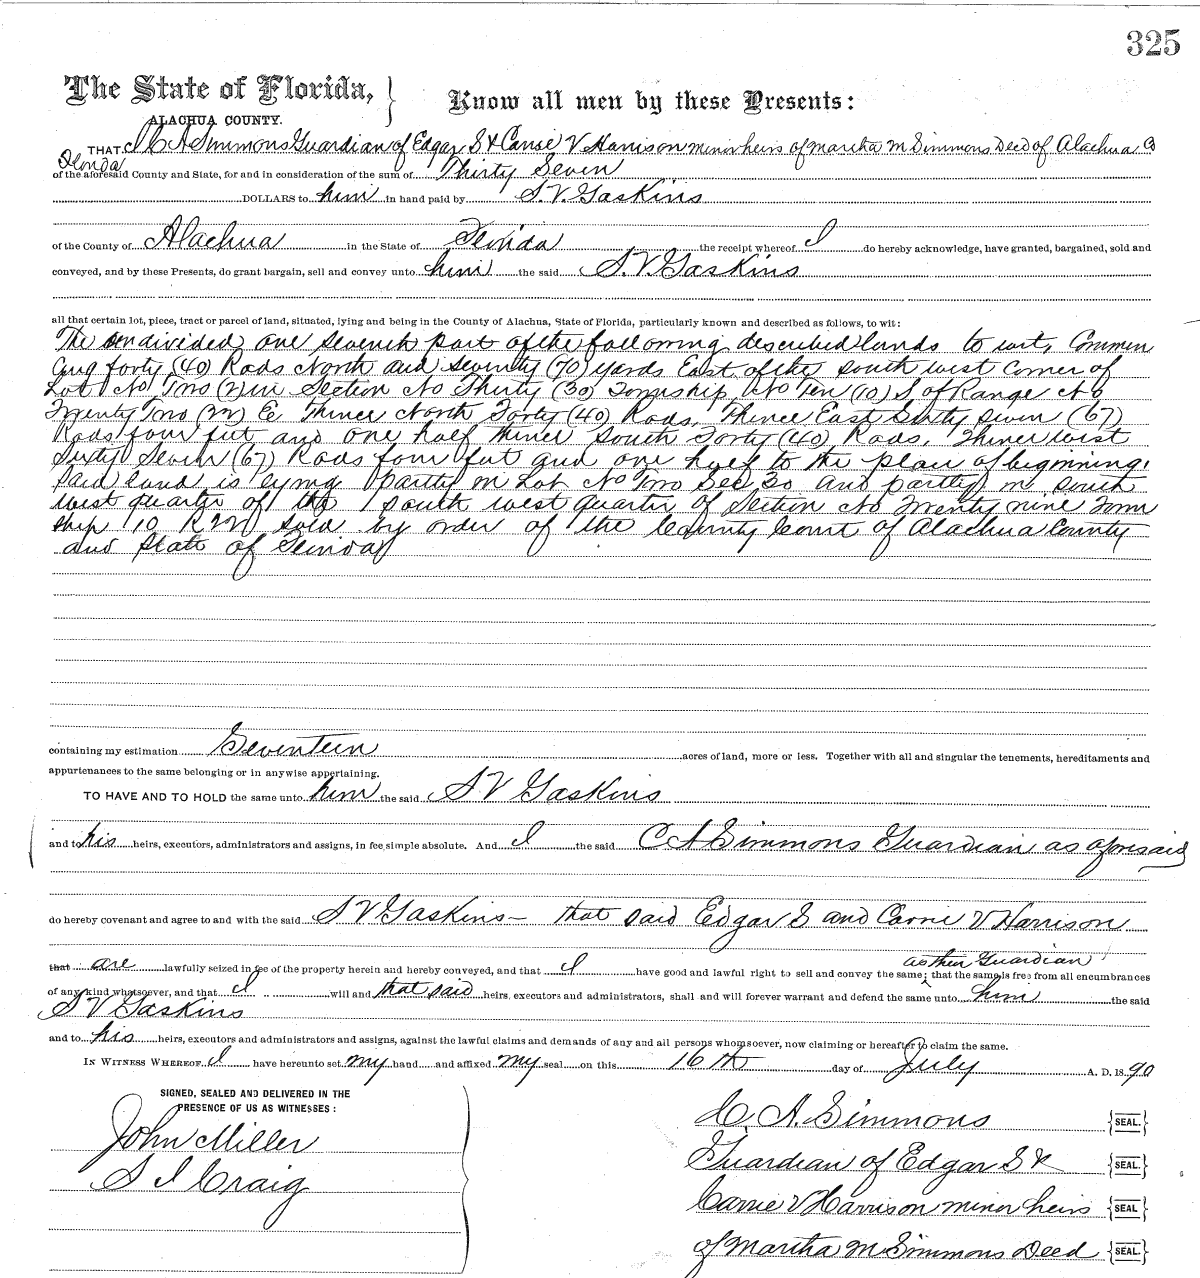 325
The State of Florida, } Know all men by these Presents:
ALACHUA COUNTY.
THAT I C A Simmons Guardian of Edgar S & Carrie V Harrison minor heirs of Martha M Simmons Deed of Alachua Co
Florida
of the aforesaid County and State, for and in consideration of the sum of Thirty Seven
DOLLARS to him in hand paid by S. V. Gaskins
of the County of Alachua in the State of Florida the receipt whereof I do hereby acknowledge, have granted, bargained, sold and
conveyed, and by these Presents, do grant bargain, sell and convey unto him the said S. V. Gaskins
all that certain lot, piece, tract or parcel of land, situated, lying and being in the County of Alachua, State of Florida, particularly known and described as follows, to wit:
The undivided one seventh part of the following described lands to wit, Commen
cing forty (40) Rods North and seventy (70) yards East of the south west corner of
Lot No Two (2) in Section No Thirty (30) Township No Ten (10) S of Range No
Twenty Two (22) E Thence North Forty (40) Rods, Thence East Sixty Seven (67)
Rods four feet and one half thence South Forty (40) Rods, Thence West
Sixty Seven (67) Rods four feet and one half to the place of beginning,
Said land is lying partly in Lot No Two Sec 30 and partly in south
west quarter of the south west quarter of Section No Twenty nine Town
ship 10 R 22 Sold by order of the County Court of Alachua County
and State of Florida
containing my estimation Seventeen acres of land, more or less. Together with all and singular the tenements, hereditaments and
appurtenances to the same belonging or in anywise appertaining.
TO HAVE AND TO HOLD the same unto him the said S V Gaskins
and to his heirs, executors, administrators and assigns, in fee simple absolute. And I the said C A Simmons Guardian as aforesaid
do hereby covenant and agree to and with the said S V Gaskins – that said Edgar S and Carrie V Harrison
as their Guardian
that are lawfully seized in fee of the property herein and hereby conveyed, and that I have good and lawful right to sell and convey the same; that the same is free from all encumbrances
of any kind whatsoever, and that I will and that said heirs, executors and administrators, shall and will forever warrant and defend the same unto him the said
S V Gaskins
and to his heirs, executors and administrators and assigns, against the lawful claims and demands of any and all persons whomsoever, now claiming or hereafter to claim the same.
IN WITNESS WHEREOF, I have hereunto set my hand and affixed my seal on this 16th day of July A. D. 1890
SIGNED, SEALED AND DELIVERED IN THE
PRESENCE OF US AS WITNESSES:
John Miller
S I Craig
C. A. Simmons {SEAL.}
Guardian of Edgar S & {SEAL.}
Carrie V Harrison minor heirs {SEAL}
of Martha M Simmons Deed {SEAL.}